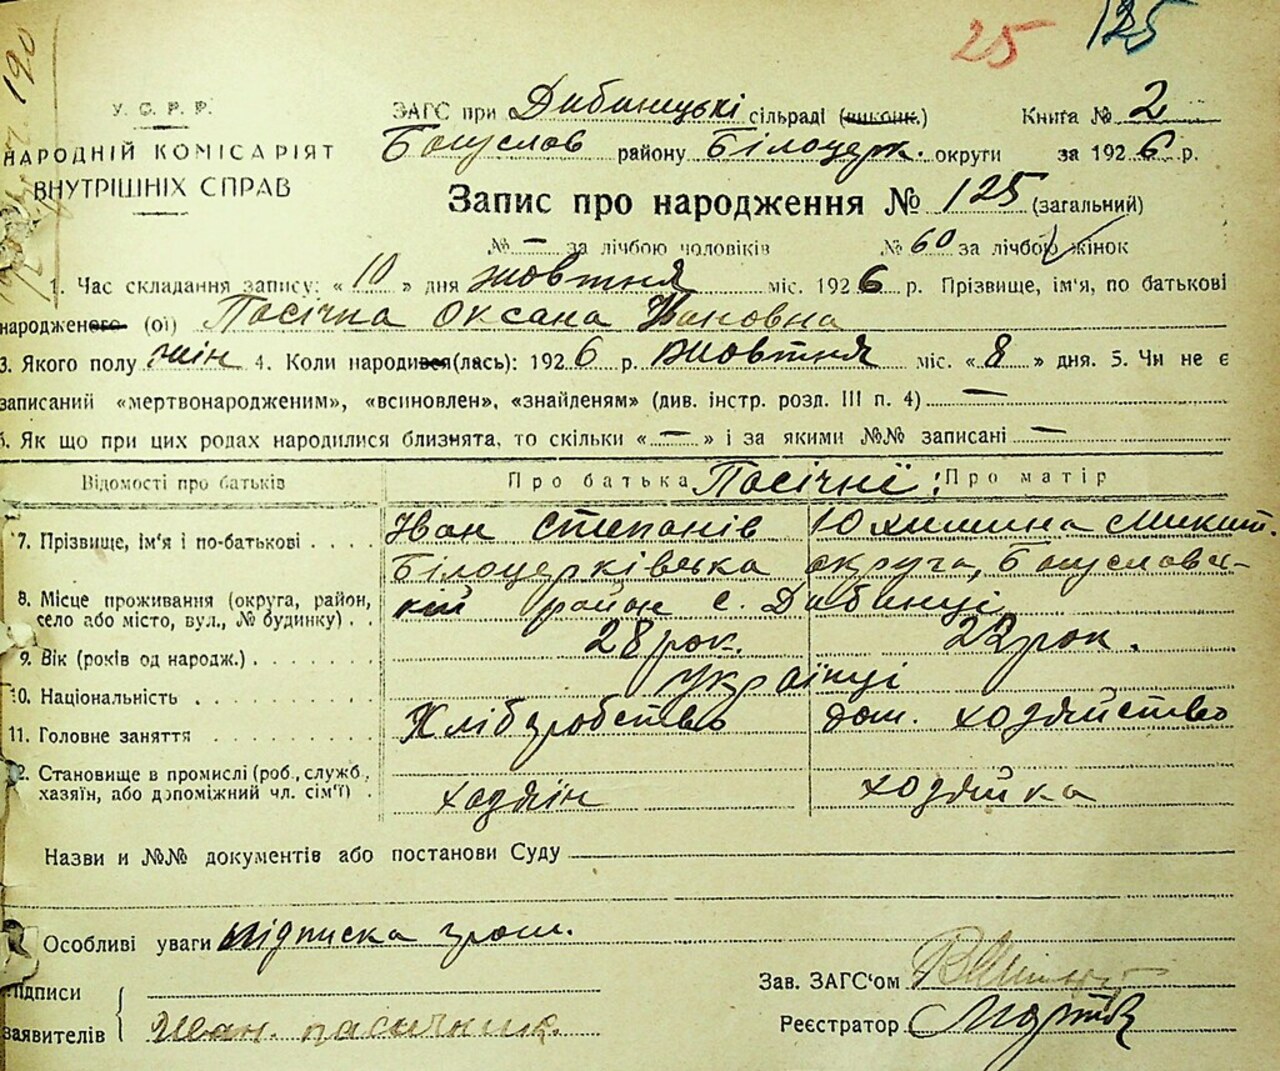 25 125
190
У. С. Р. Р.
НАРОДНІЙ КОМІСАРІЯТ
ВНУТРІШНІХ СПРАВ
ЗАГС при Дибинецькі сільраді (виконк.) Книга № 2
Богуслав району Білоцерк. округи за 1926 р.
Запис про народження № 125 (загальний)
№ — за лічбою чоловіків № 60 за лічбою жінок
1. Час складання запису: « 10 » дня жовтня міс. 1926 р. Прізвище, ім'я, по батькові
народженого (ої) Пасічна Оксана Івановна
3. Якого полу жін 4. Коли народився(лась): 1926 р. жовтня міс. « 8 » дня. 5. Чи не є
записаний «мертвонародженим», «всиновлен», «знайденям» (див. інстр. розд. III п. 4) —
6. Як що при цих родах народилися близнята, то скільки « — » і за якими №№ записані —
Відомості про батьків Про батька Пасічні: Про матір
7. Прізвище, ім'я і по-батькові Іван Степанів Юхимина Микит.
Білоцерківська округа, Богуславсь-
8. Місце проживання (округа, район, село або місто, вул., № будинку) кій район с. Дибинці
9. Вік (років од народж.) 28 рок. 22 рок.
10. Національність українці
11. Головне заняття Хліборобство дом. хозяйство
12. Становище в промислі (роб., служб., хазяїн, або допоміжний чл. сім'ї) хозяін хозяйка
Назви и №№ документів або постанови Суду
Особливі уваги підписка гром.
Зав. ЗАГС'ом
Підписи заявителів Иван. пасичник.
Реєстратор